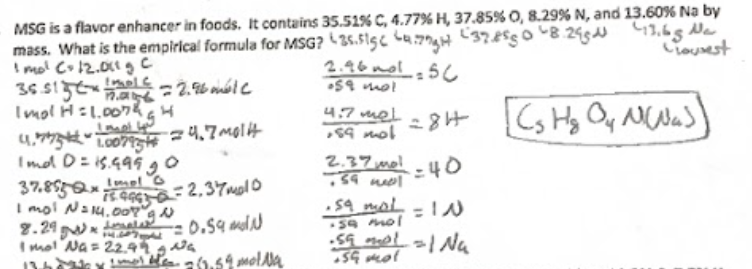 MSG is a flavor enhancer in foods. It contains 35.51% C, 4.77% H, 37.85% O, 8.29% N, and 13.60% Na by
mass. What is the empirical formula for MSG? 35.51g C 4.77g H 37.85g O 8.29g N 13.6g Na
lowest
1 mol C = 12.011 g C
35.51g C × 1 mol C / 12.011g C = 2.96 mol C
1 mol H = 1.0079 g H
4.77g H × 1 mol H / 1.0079g H = 4.7 mol H
1 mol O = 15.999 g O
37.85g O × 1 mol O / 15.999g O = 2.37 mol O
1 mol N = 14.007 g N
8.29 g N × 1 mol N / 14.007g N = 0.59 mol N
1 mol Na = 22.99 g Na
1 mol Na = 0.59 mol Na
2.96 mol / .59 mol = 5C
4.7 mol / .59 mol = 8H
2.37 mol / .59 mol = 4O
.59 mol / .59 mol = 1N
.59 mol / .59 mol = 1Na
C5 H8 O4 N(Na)